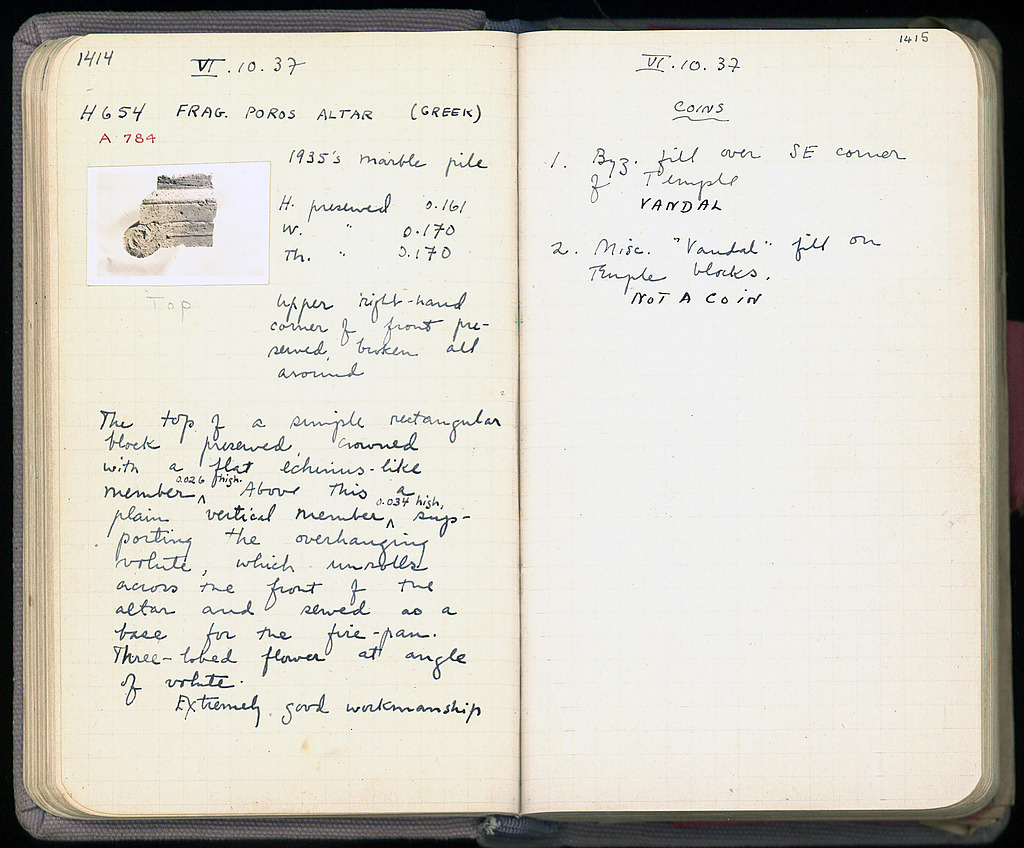 1414
VI.10.37
H654 FRAG. POROS ALTAR (GREEK)
A 784
1935's marble pile
H. preserved 0.161
W. " 0.170
Th. " 0.170
Top
Upper right-hand
corner of front pre-
served, broken all
around
The top of a simple rectangular
block preserved, crowned
with a flat echinus-like
member ^ 0.026 high. Above this a
plain vertical member ^ 0.034 high, sup-
porting the overhanging
volute, which unrolls
across the front of the
altar and served as a
base for the fire-pan.
Three-lobed flower at angle
of volute.
Extremely good workmanship
1415
VI.10.37
COINS
1. Byz. fill over SE corner
of Temple
VANDAL
2. Misc. "Vandal" fill on
Temple blocks.
NOT A COIN